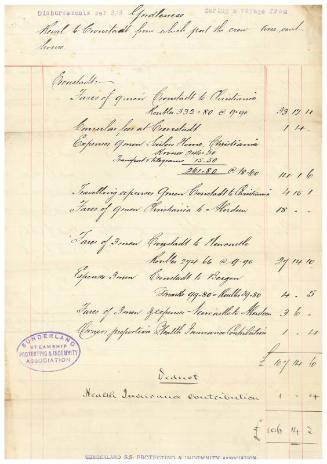 Disbursements per S/S Gordoness during a voyage from
Reval to Cronstadt from which port the crew were sent
home.
Cronstadt:-
Fares of 9 men Cronstadt to Christiania
Roubles 332-80 @ 9-90 33 12 10
Consular fees at Cronstadt 1 4
Expenses 9 men Sailors Home, Christiania
Kroner 246-30
Transport & telegrams 15.50
261-80 @ 18-60 14 1 6
Travelling expenses 9 men Cronstadt to Christiania 4 16 1
Fares of 9 men Christiania to Aberdeen 18 - -
Fares of 3 men Cronstadt to Newcastle
Roubles 274 66 @ 9-90 27 14 10
Expenses 3 men Cronstadt to Bergen
4 - 5
Fares of 3 men & expenses Newcastle to Aberdeen 3 6 -
Owners proportion Health Insurance Contribution 1 - 4
£ 107 14 6
Deduct
Health Insurance contribution 1 - 4
£ 106 14 2
SUNDERLAND
STEAMSHIP
PROTECTING & INDEMNITY
ASSOCIATION
SUNDERLAND S.S. PROTECTING & INDEMNITY ASSOCIATION